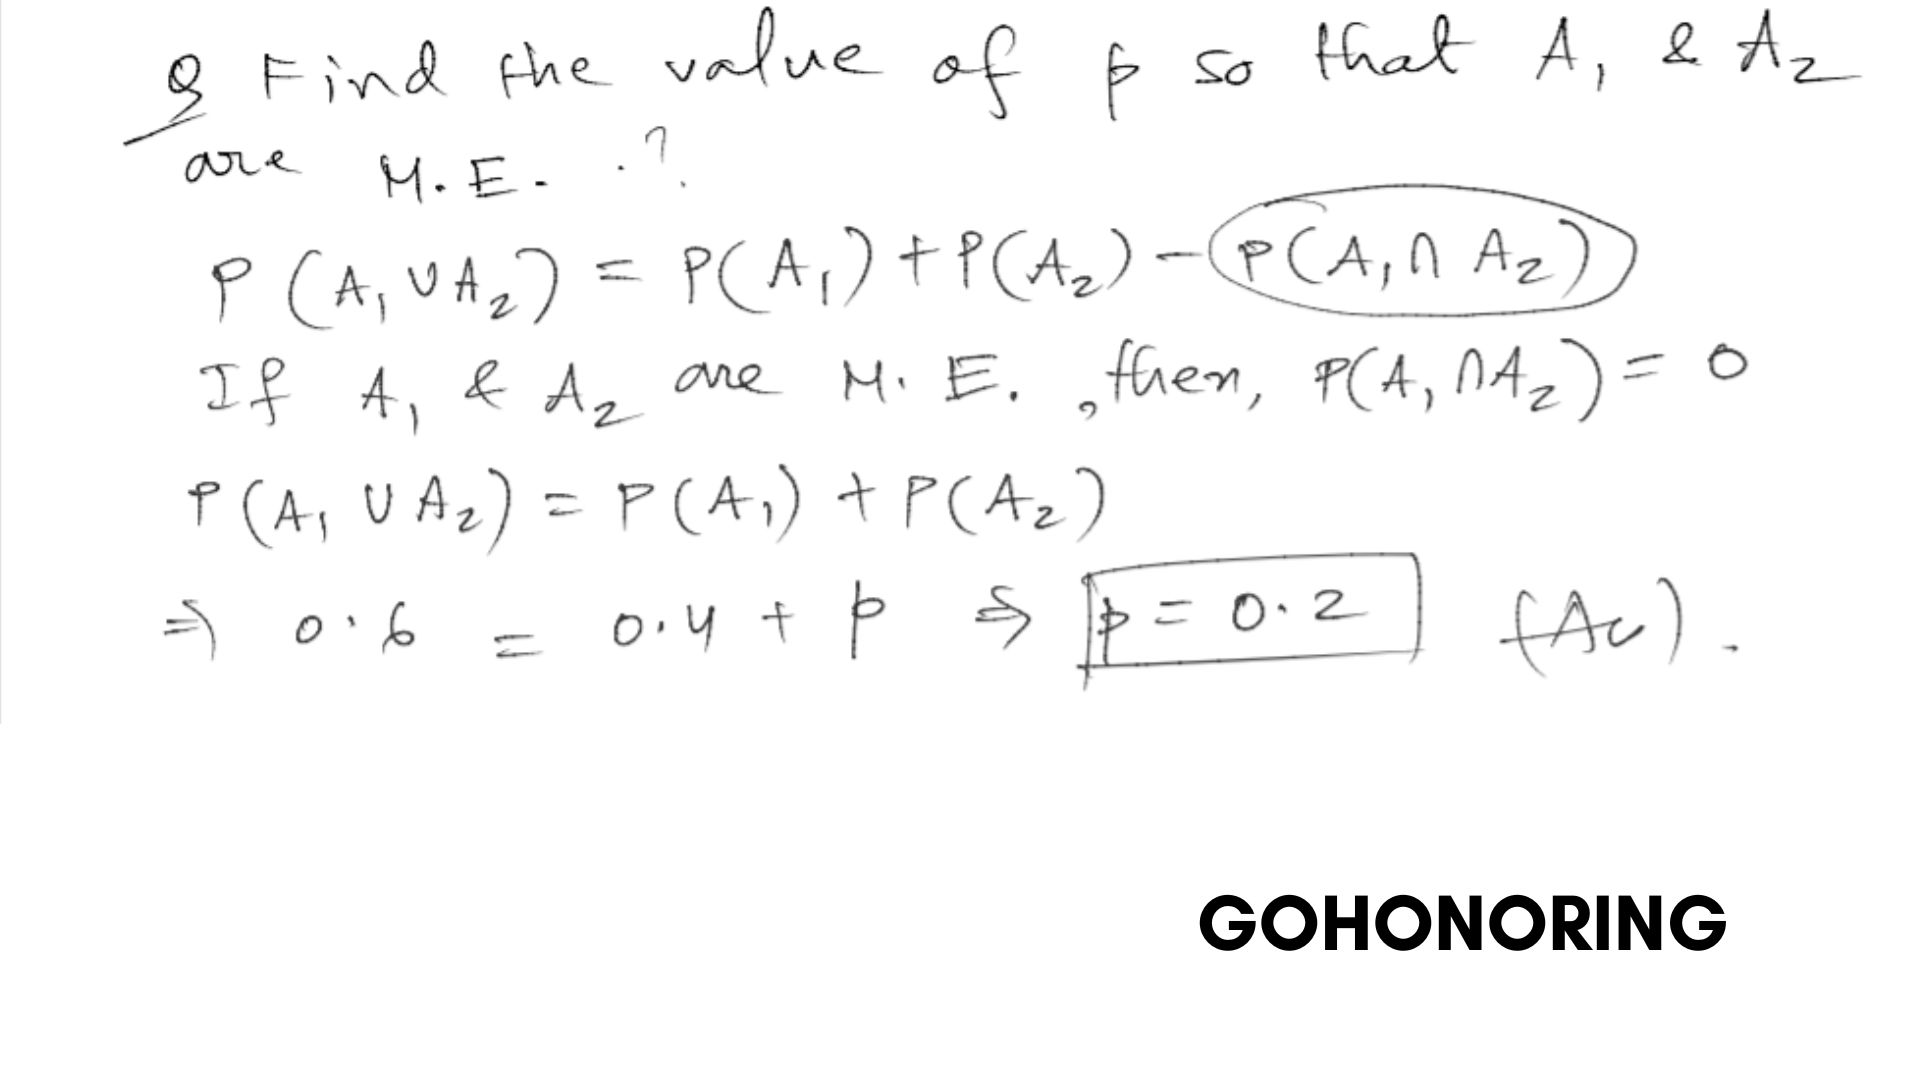 Q Find the value of p so that A₁ & A₂
are M.E. .?
P(A₁ ∪ A₂) = P(A₁) + P(A₂) - P(A₁ ∩ A₂)
If A₁ & A₂ are M.E. , then, P(A₁ ∩ A₂) = 0
P(A₁ ∪ A₂) = P(A₁) + P(A₂)
⇒ 0.6 = 0.4 + p ⇒ p = 0.2
GOHONORING